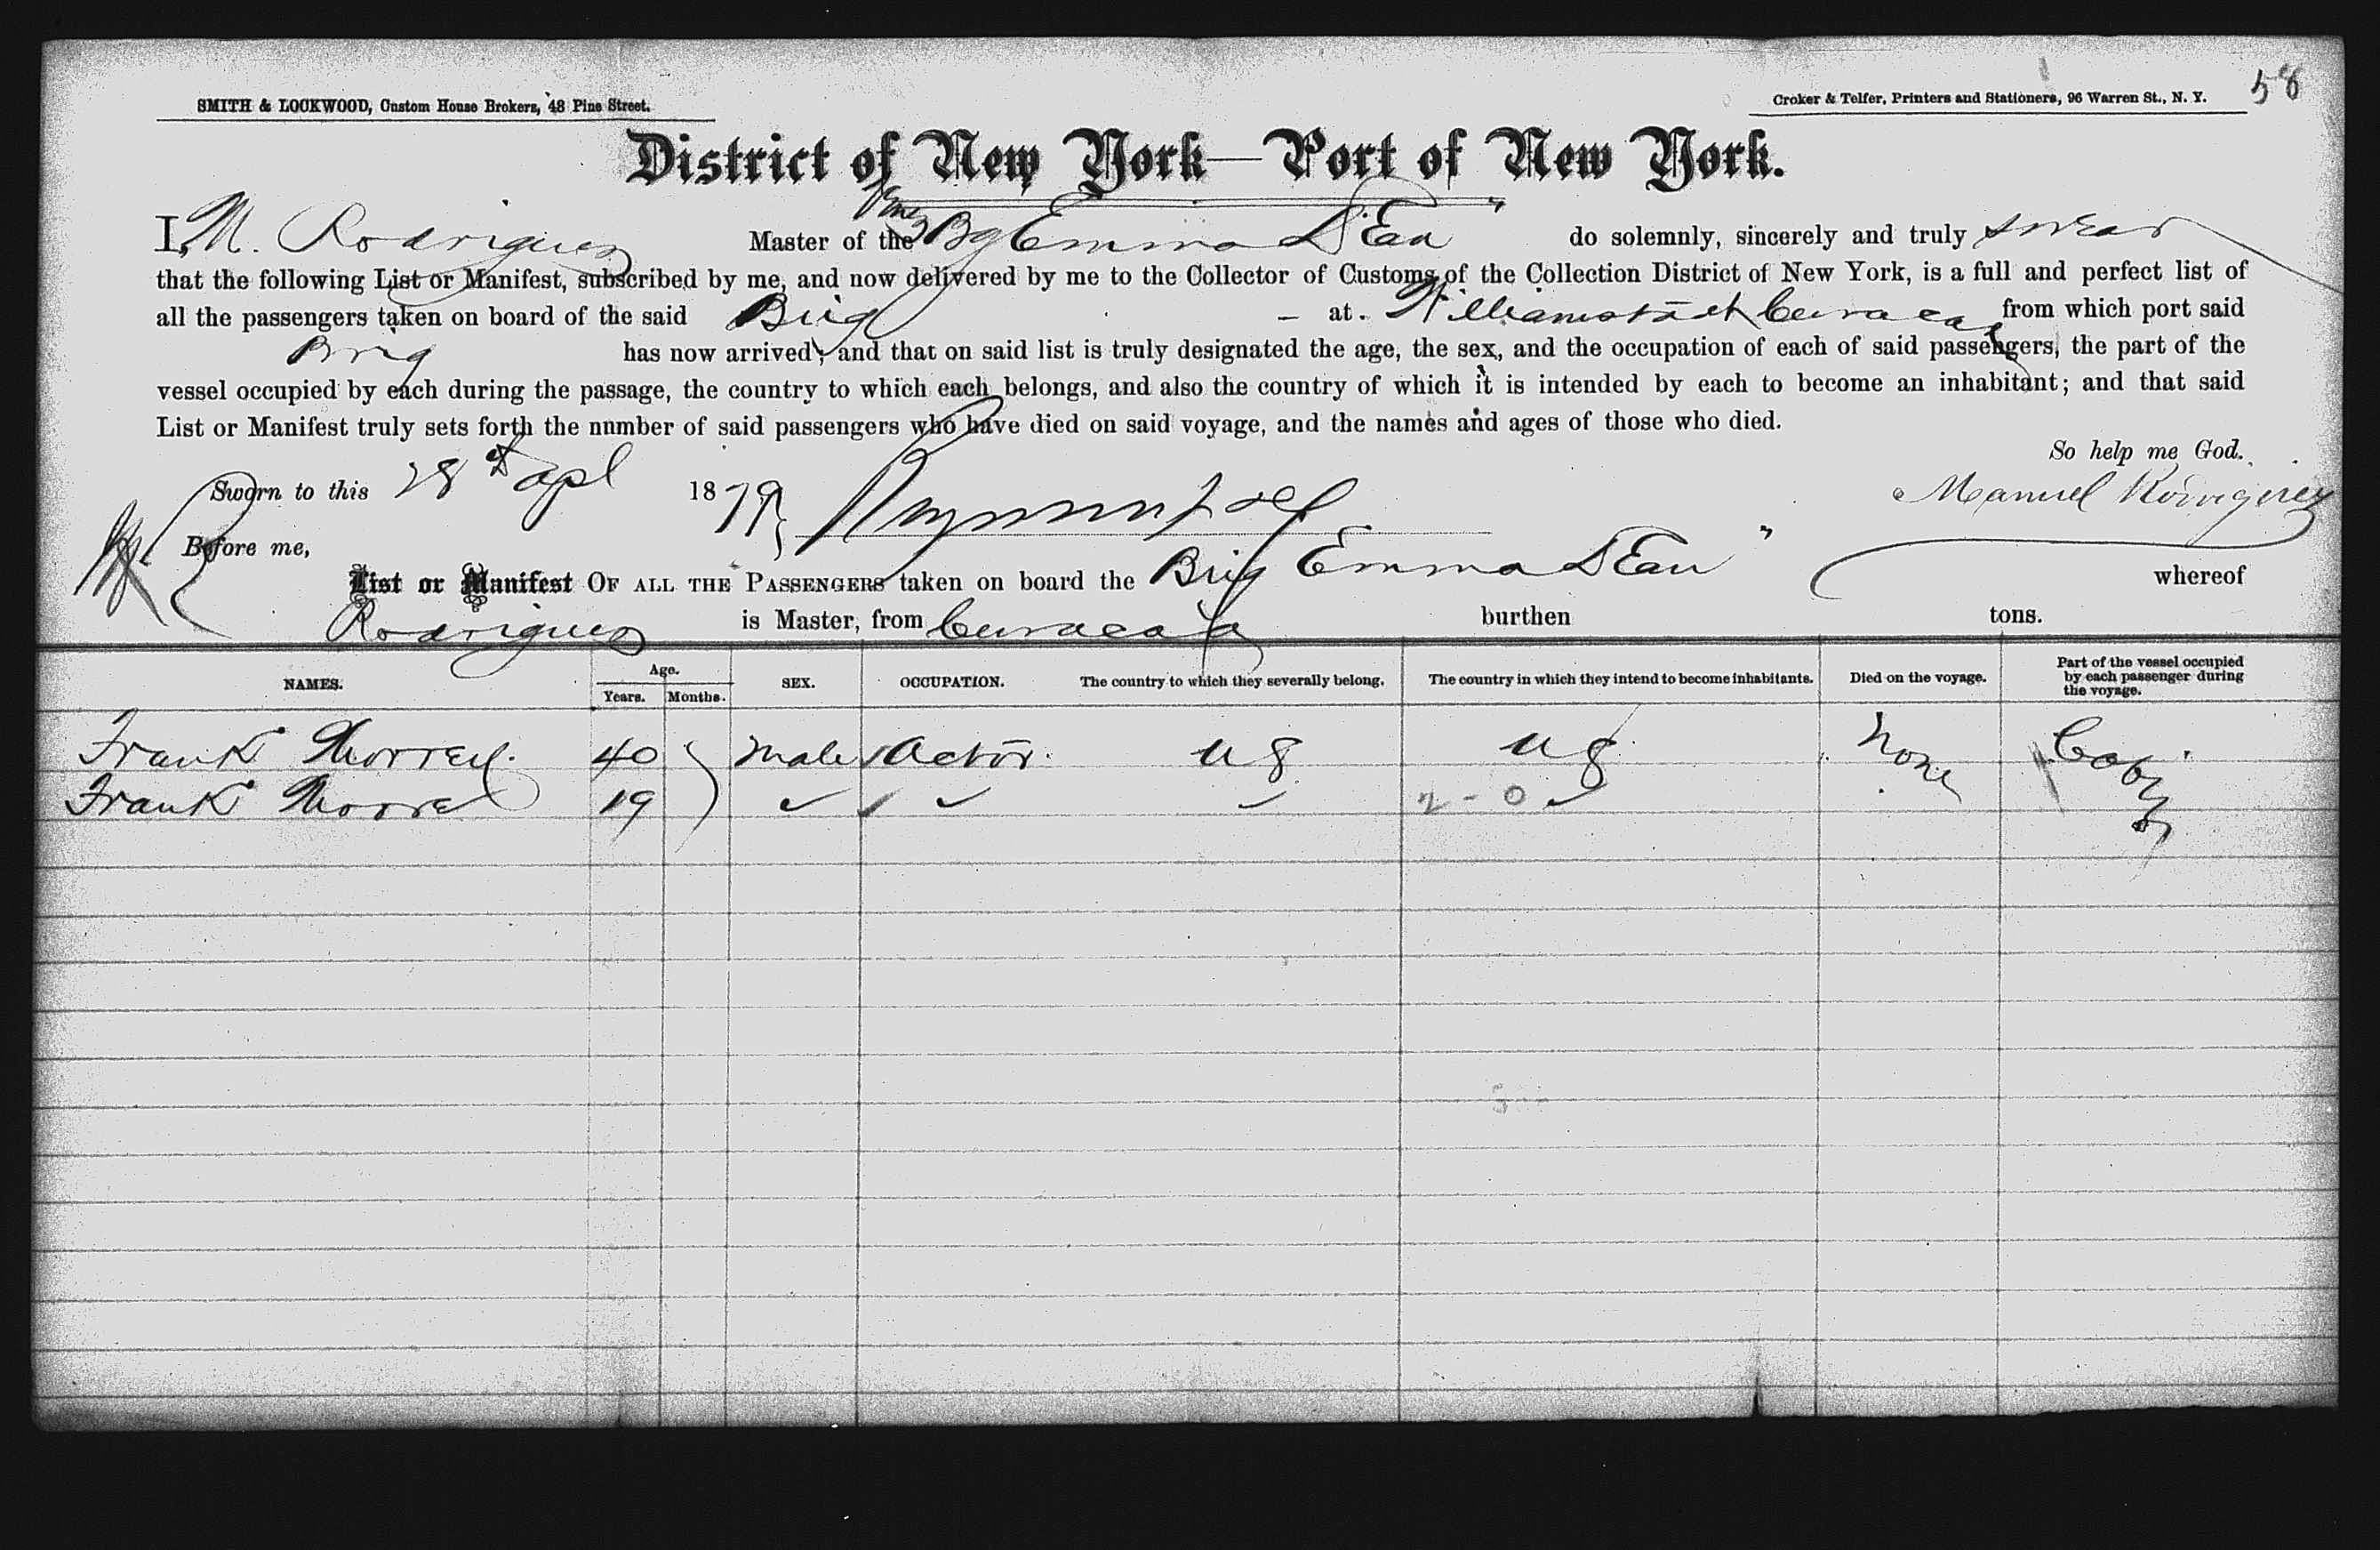 58
SMITH & LOCKWOOD, Custom House Brokers, 48 Pine Street.
Croker & Telfer, Printers and Stationers, 96 Warren St., N. Y.
District of New York—Port of New York.
I, M. Rodriguez Master of the Bg Emma D Eau do solemnly, sincerely and truly swear
that the following List or Manifest, subscribed by me, and now delivered by me to the Collector of Customs of the Collection District of New York, is a full and perfect list of
all the passengers taken on board of the said Brig – at Curacao from which port said
Brig has now arrived; and that on said list is truly designated the age, the sex, and the occupation of each of said passengers, the part of the
vessel occupied by each during the passage, the country to which each belongs, and also the country of which it is intended by each to become an inhabitant; and that said
List or Manifest truly sets forth the number of said passengers who have died on said voyage, and the names and ages of those who died.
So help me God.
Sworn to this 28th apl 1879
Manuel
Before me,
List or Manifest OF ALL THE PASSENGERS taken on board the Brig Emma D Eau " whereof
Rodriguez is Master, from Curacao burthen tons.
NAMES. Age. Years. Months. SEX. OCCUPATION. The country to which they severally belong. The country in which they intend to become inhabitants. Died on the voyage. Part of the vessel occupied by each passenger during the voyage.
Frank 40 male Actor US US none Cabin
Frank 19 ✓ ✓ ✓ 2 - 0 ✓